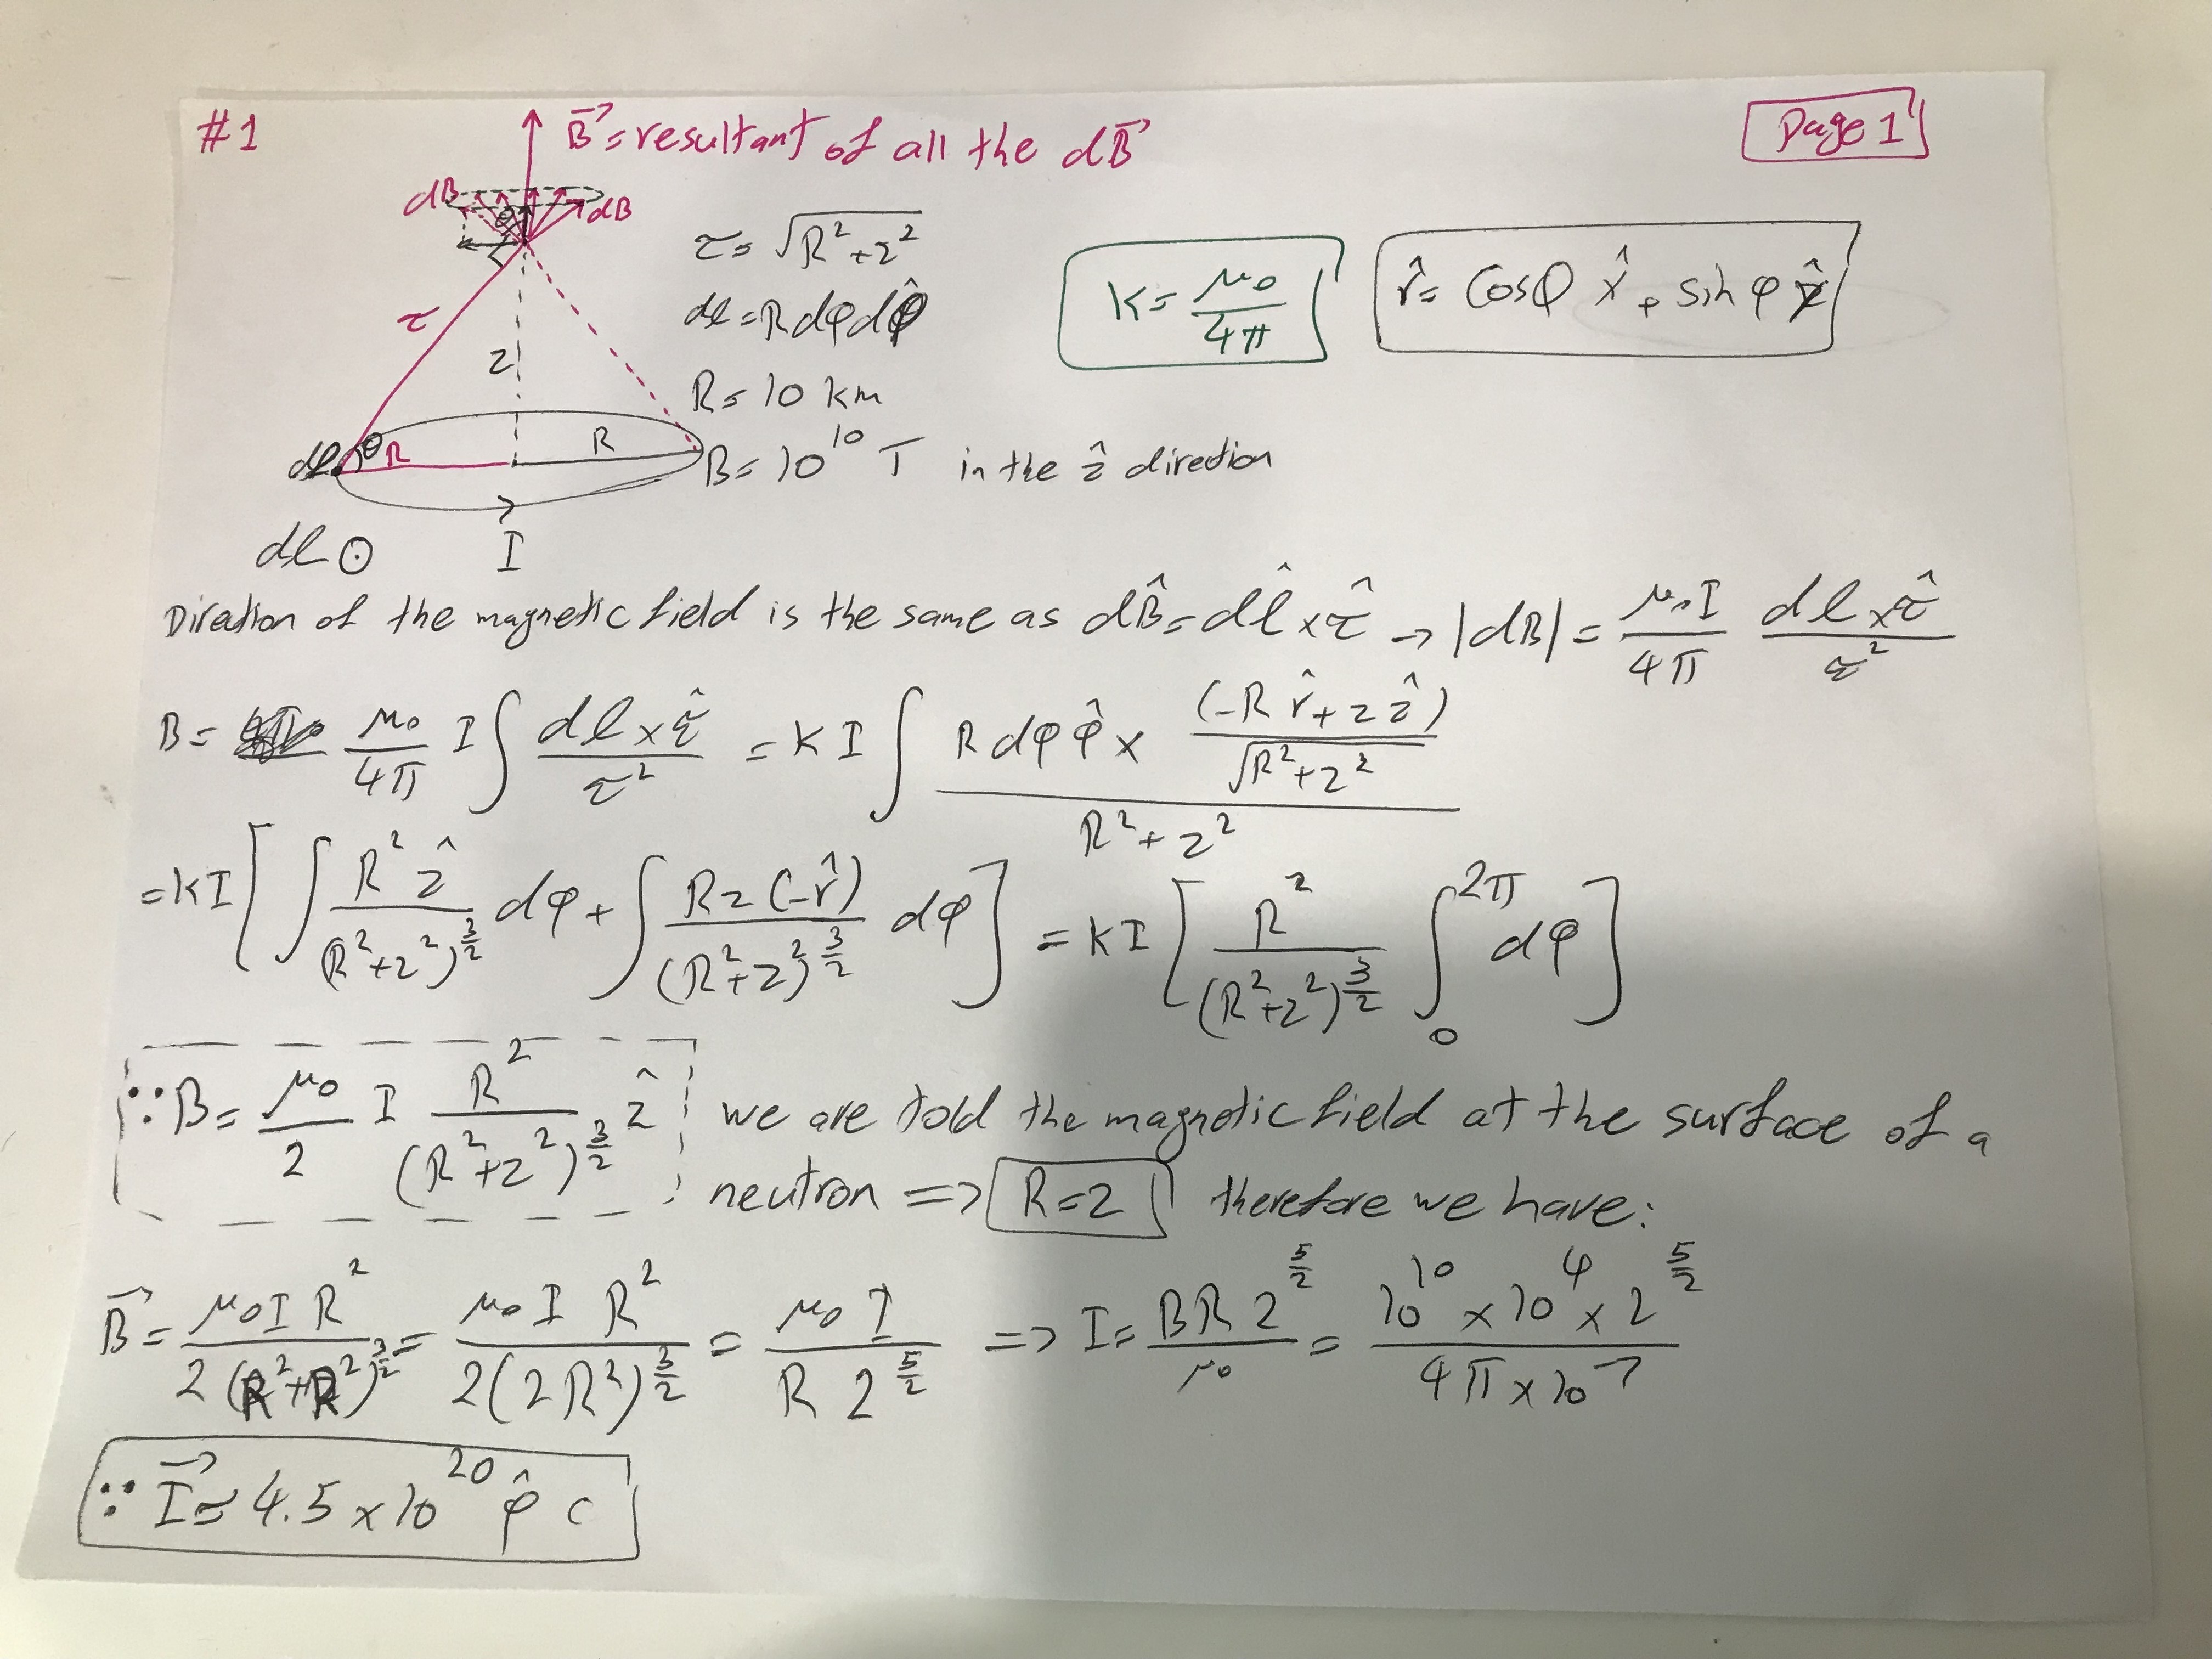 #1
B⃗ = resultant of all the dB⃗
Page 1
dB
dB
θ
𝓇 = √(R² + z²)
K = μ₀/4π
r̂ = Cosφ x̂ + sin φ ŷ
dl = R dφ dφ̂
𝓇
z
R = 10 km
dl θ R
R
B = 10¹⁰ T in the ẑ direction
dl ⊙
I
Diration of the magnetic field is the same as dB̂ = dl̂ × 𝓇̂ → |dB| = μ₀I/4π dl × 𝓇̂/𝓇²
B = μ₀/4π I ∫ dl × 𝓇̂/𝓇² = K I ∫ R dφ φ̂ × (-R r̂ + z ẑ)/√(R² + z²) / R² + z²
= KI [ ∫ R² ẑ/(R² + z²)^(3/2) dφ + ∫ Rz (-r̂)/(R² + z²)^(3/2) dφ ] = KI [ R²/(R² + z²)^(3/2) ∫₀^2π dφ ]
∵ B = μ₀/2 I R²/(R² + z²)^(3/2) ẑ
we are told the magnetic field at the surface of a
neutron => R = z therefore we have:
B⃗ = μ₀ I R²/2 (R² + R²)^(3/2) = μ₀ I R²/2(2R²)^(3/2) = μ₀ I/R 2^(5/2) => I = B R 2^(5/2)/μ₀ = 10¹⁰ × 10⁴ × 2^(5/2)/4π × 10⁻⁷
∵ I⃗ ≈ 4.5 × 10²⁰ φ̂ C